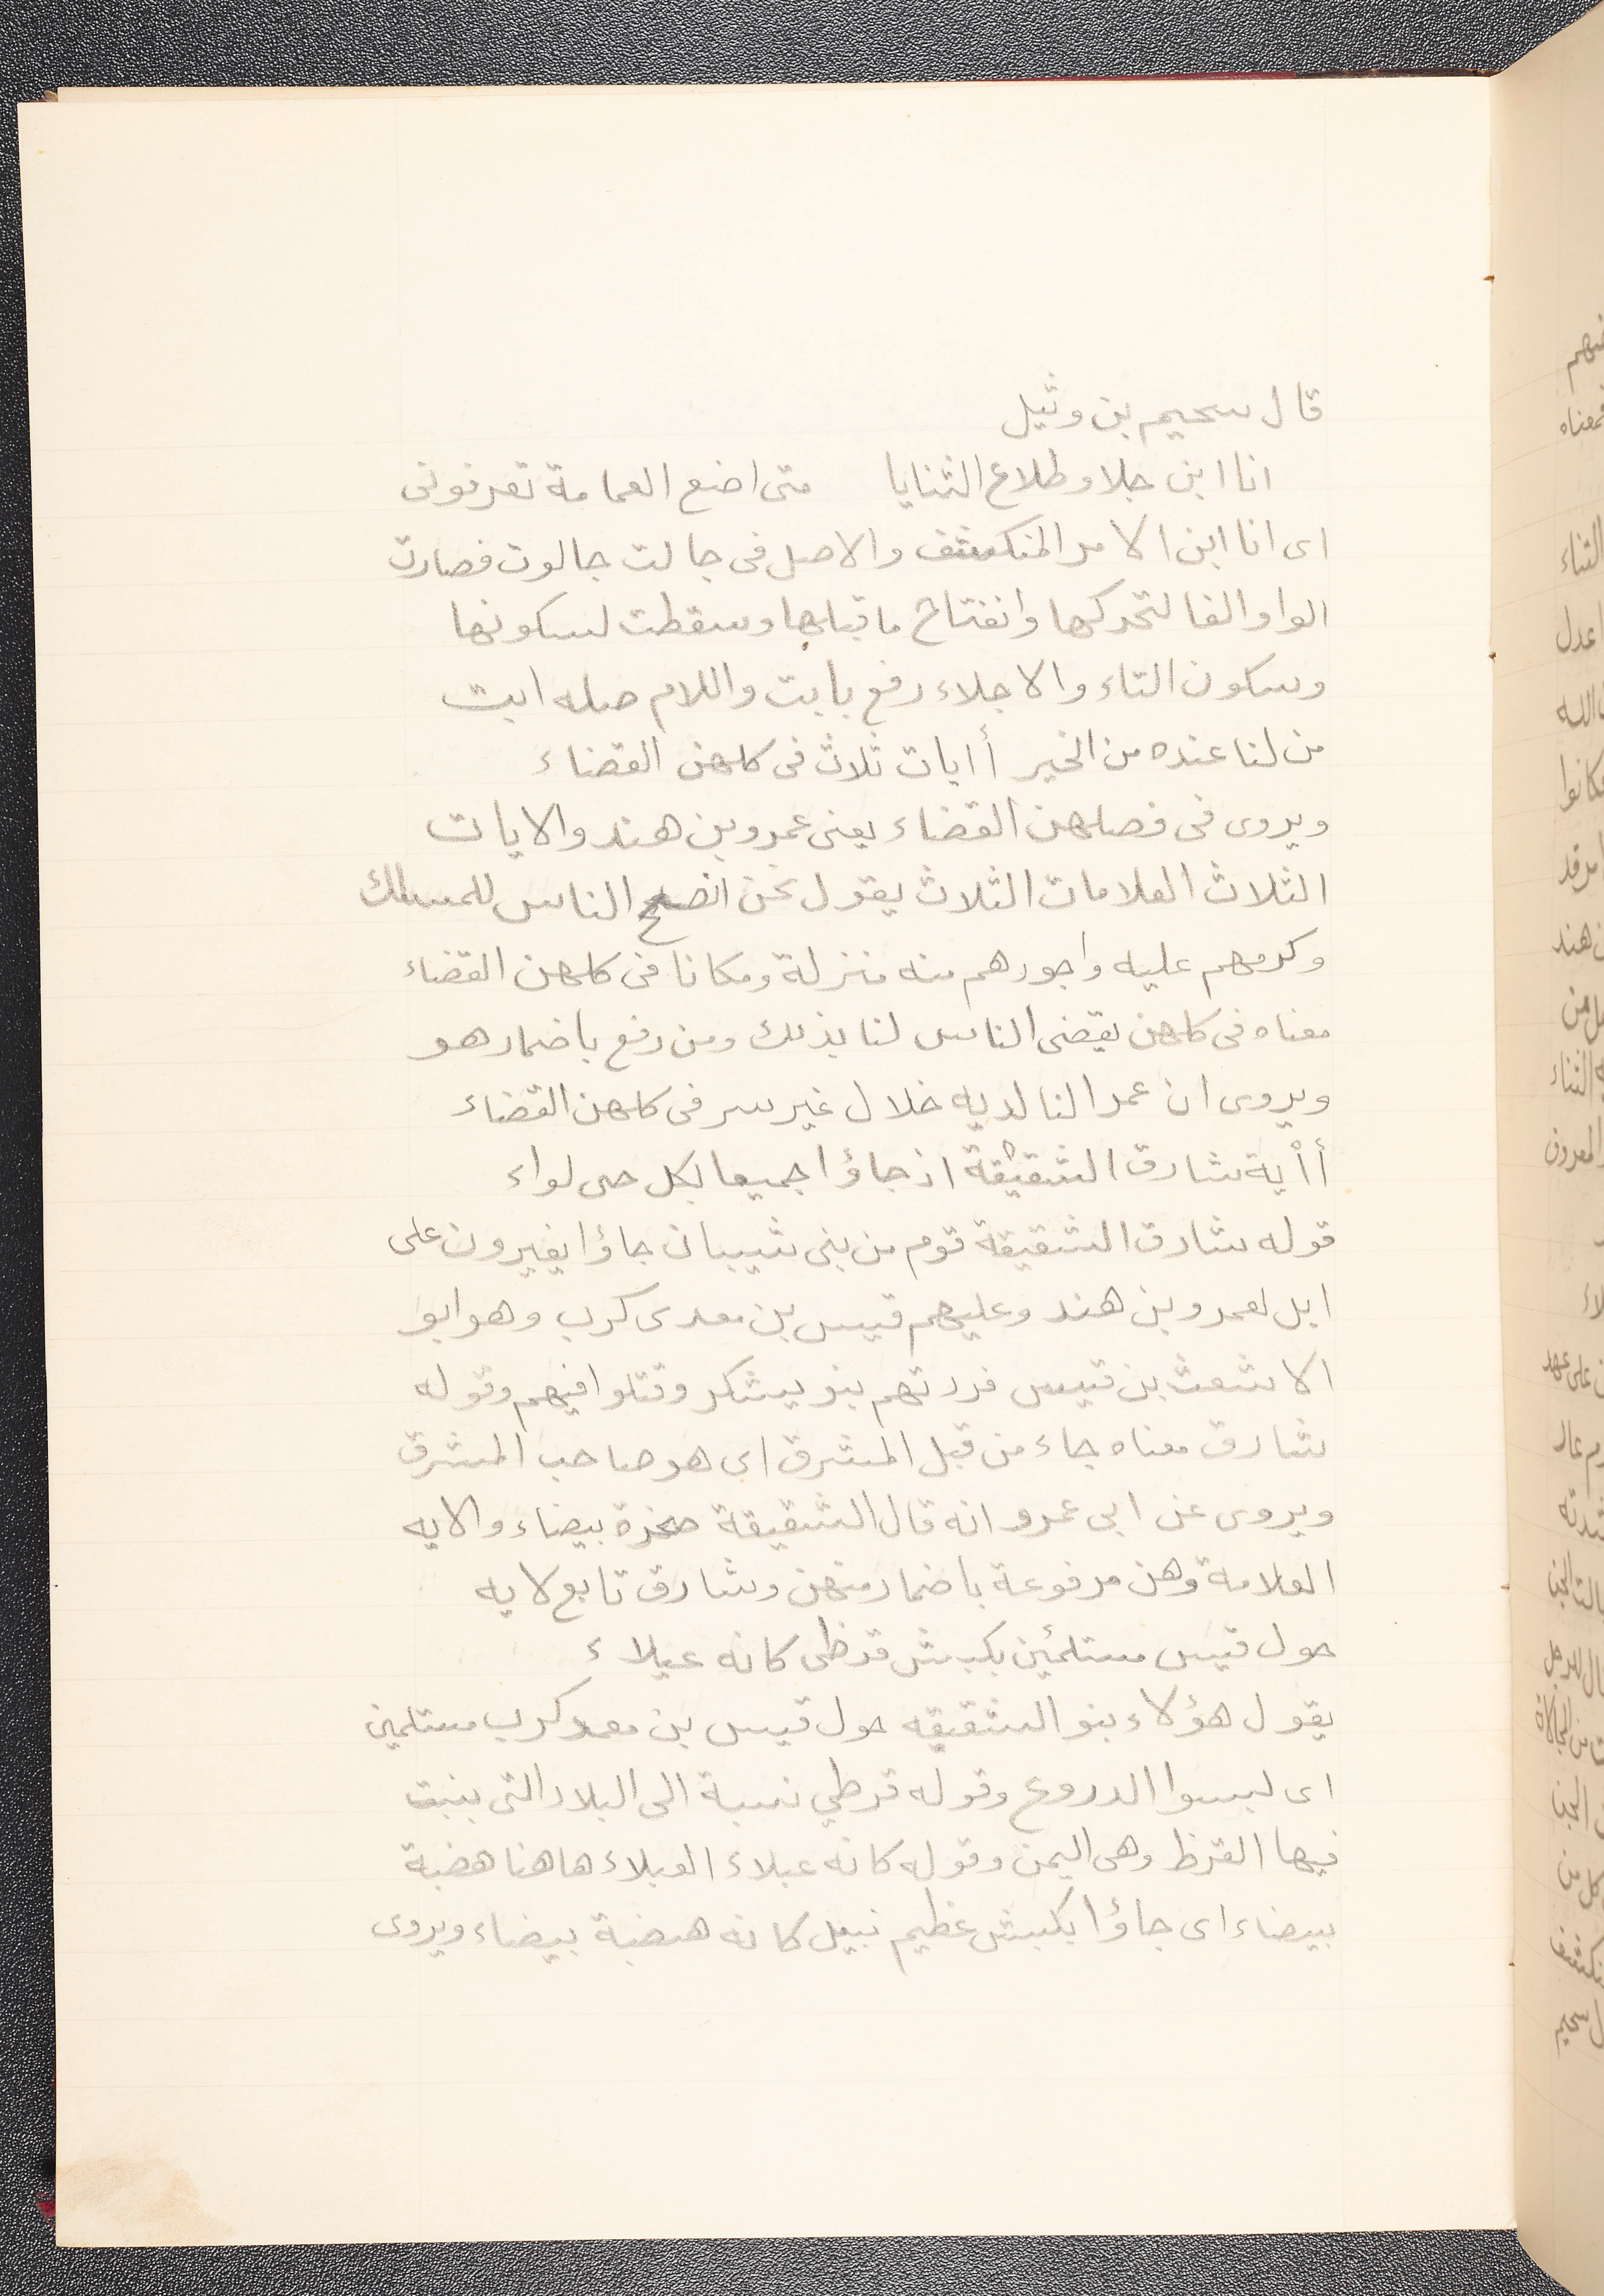 قال سحيم بن وثيل
انا ابن جلا وطلاع الثنايا متى اضع العمامة تعرفونى
اى انا ابن الامر المنكشف والاصل فى جالت جالوت فصارت
الواو الفا لتحركها وانفتاح ما قبلها وسقطت لسكونها
وسكون التاء والاجلاء رفع بابت واللام صله ابت
من لنا عنده من الخير أايات ثلاث فى كلهن القضاء
ويروى فى فصلهن القضاء يعنى عمرو بن هند والايات
الثلاث العلامات الثلاث يقول نحن انصح الناس للمسلك
وكرمهم عليه واجورهم منه منزلة ومكانا فى كلهن القضاء
معناه فى كلهن يقضى الناس لنا بذلك ومن رفع باضمار هو
ويروى ان عمرا لنا لديه خلال غير سر فى كلهن القضاء
أاية شارق الشقيقة اذ جاؤا جميعا لكل حى لواء
قوله شارق الشقيقة قوم من بنى شيبان جاؤا يغيرون على
ابل لعمرو بن هند وعليهم قيس بن معدى كرب وهو ابو
الاشعث بن قيس فردتهم بنو يشكر وقتلوا فيهم وقوله
شارق معناه جاء من قبل المشرق اى هو صاحب المشرق
ويروى عن ابى عمرو انه قال الشقيقة صخرة بيضاء والايه
العلامة وهن مرفوعة باضمار منهن وشارق تابع لايه
حول قيس مستلئمين بكبش قرظى كانه عبلاء
يقول هؤلاء بنو الشقيقه حول قيس بن معد كرب مستلمين
اى لبسوا الدروع وقوله قرطي نسبة الى البلاد التى ينبت
فيها القرظ وهى اليمن وقوله كانه عبلاء العبلاء هاهنا هضبة
بيضاء اى جاؤا بكبش عظيم نبيل كانه هضبة بيضاء ويروى